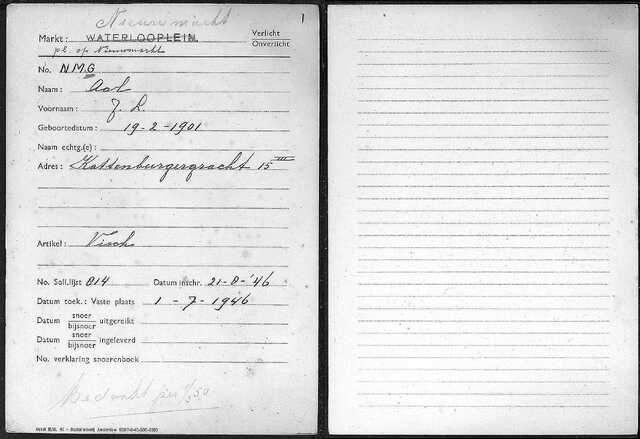 Nieuwmarkt
1
Markt: WATERLOOPLEIN. Verlicht
Onverlicht
pl. op Nieuwmarkt
No. N.M.G
Naam: Aal
Voornaam: J. L.
Geboortedatum: 19-2-1901
Naam echtg.(e):
Adres: Kattenburgergracht 15 III
Artikel: Visch
No. Soll.lijst 814 Datum inschr. 21-8-'46
Datum toek.: Vaste plaats 1-7-1946
Datum snoer/bijsnoer uitgereikt
Datum snoer/bijsnoer ingeleverd
No. verklaring snoerenboek
Bedankt per